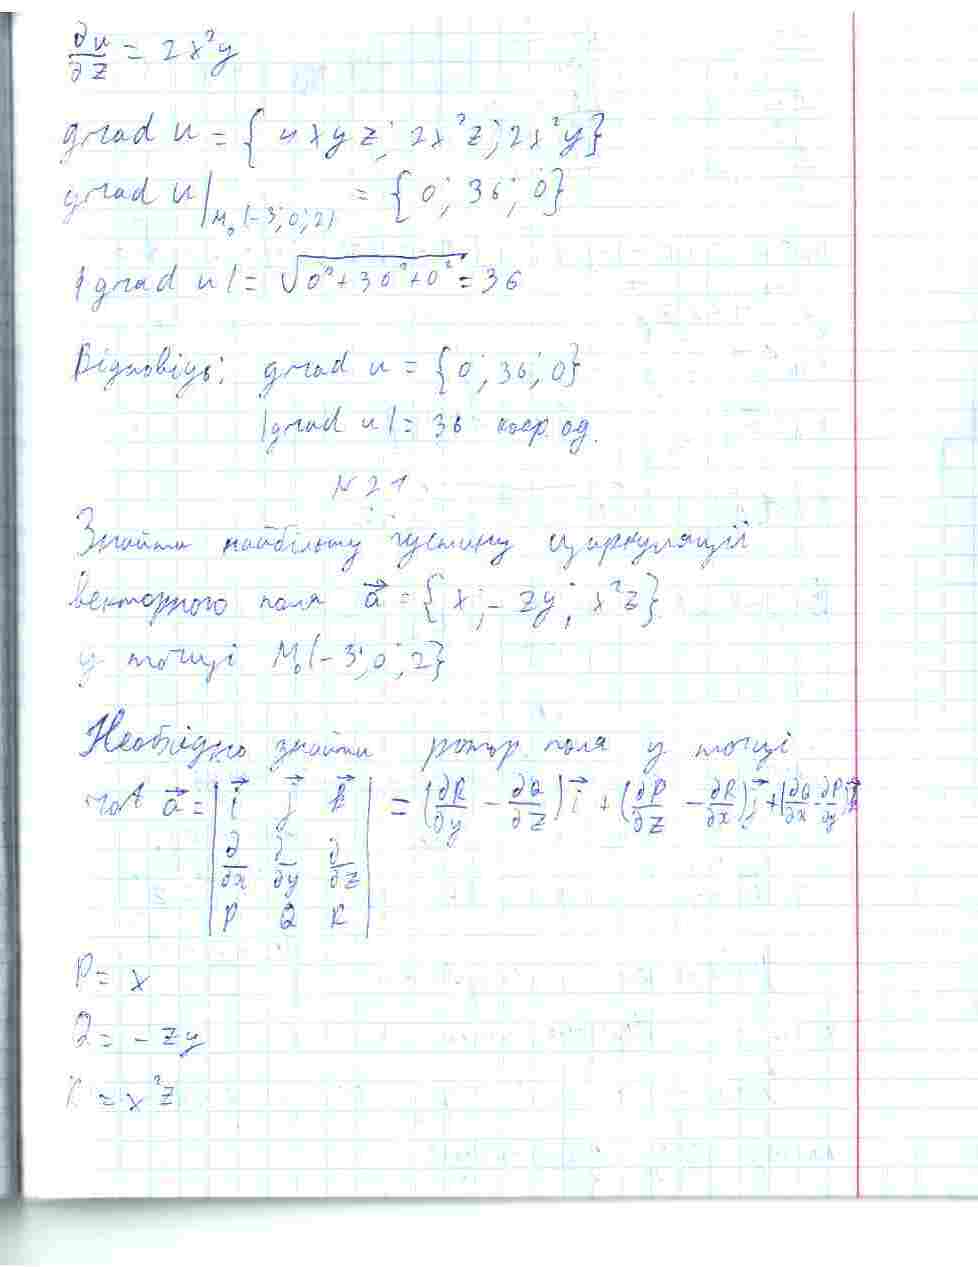 ∂u/∂z = 2x²y
grad u = {4xyz; 2x²z; 2x²y}
grad u|M₀(-3;0;2) = {0; 36; 0}
|grad u| = √(0²+36²+0²) = 36
Відповідь: grad u = {0; 36; 0}
|grad u| = 36 од.
N 21.
Знайти найбільшу густину циркуляції
векторного поля a⃗ = {x; -zy; x²z}
у точці M₀(-3;0;2}
Необхідно знайти ротор поля у точці
rot a⃗ = | i⃗ j⃗ k⃗ | = (∂R/∂y - ∂Q/∂z) i⃗ + (∂P/∂z - ∂R/∂x) j⃗ + (∂Q/∂x - ∂P/∂y) k⃗
∂/∂x ∂/∂y ∂/∂z
P Q R
P = x
Q = - zy
R = x²z